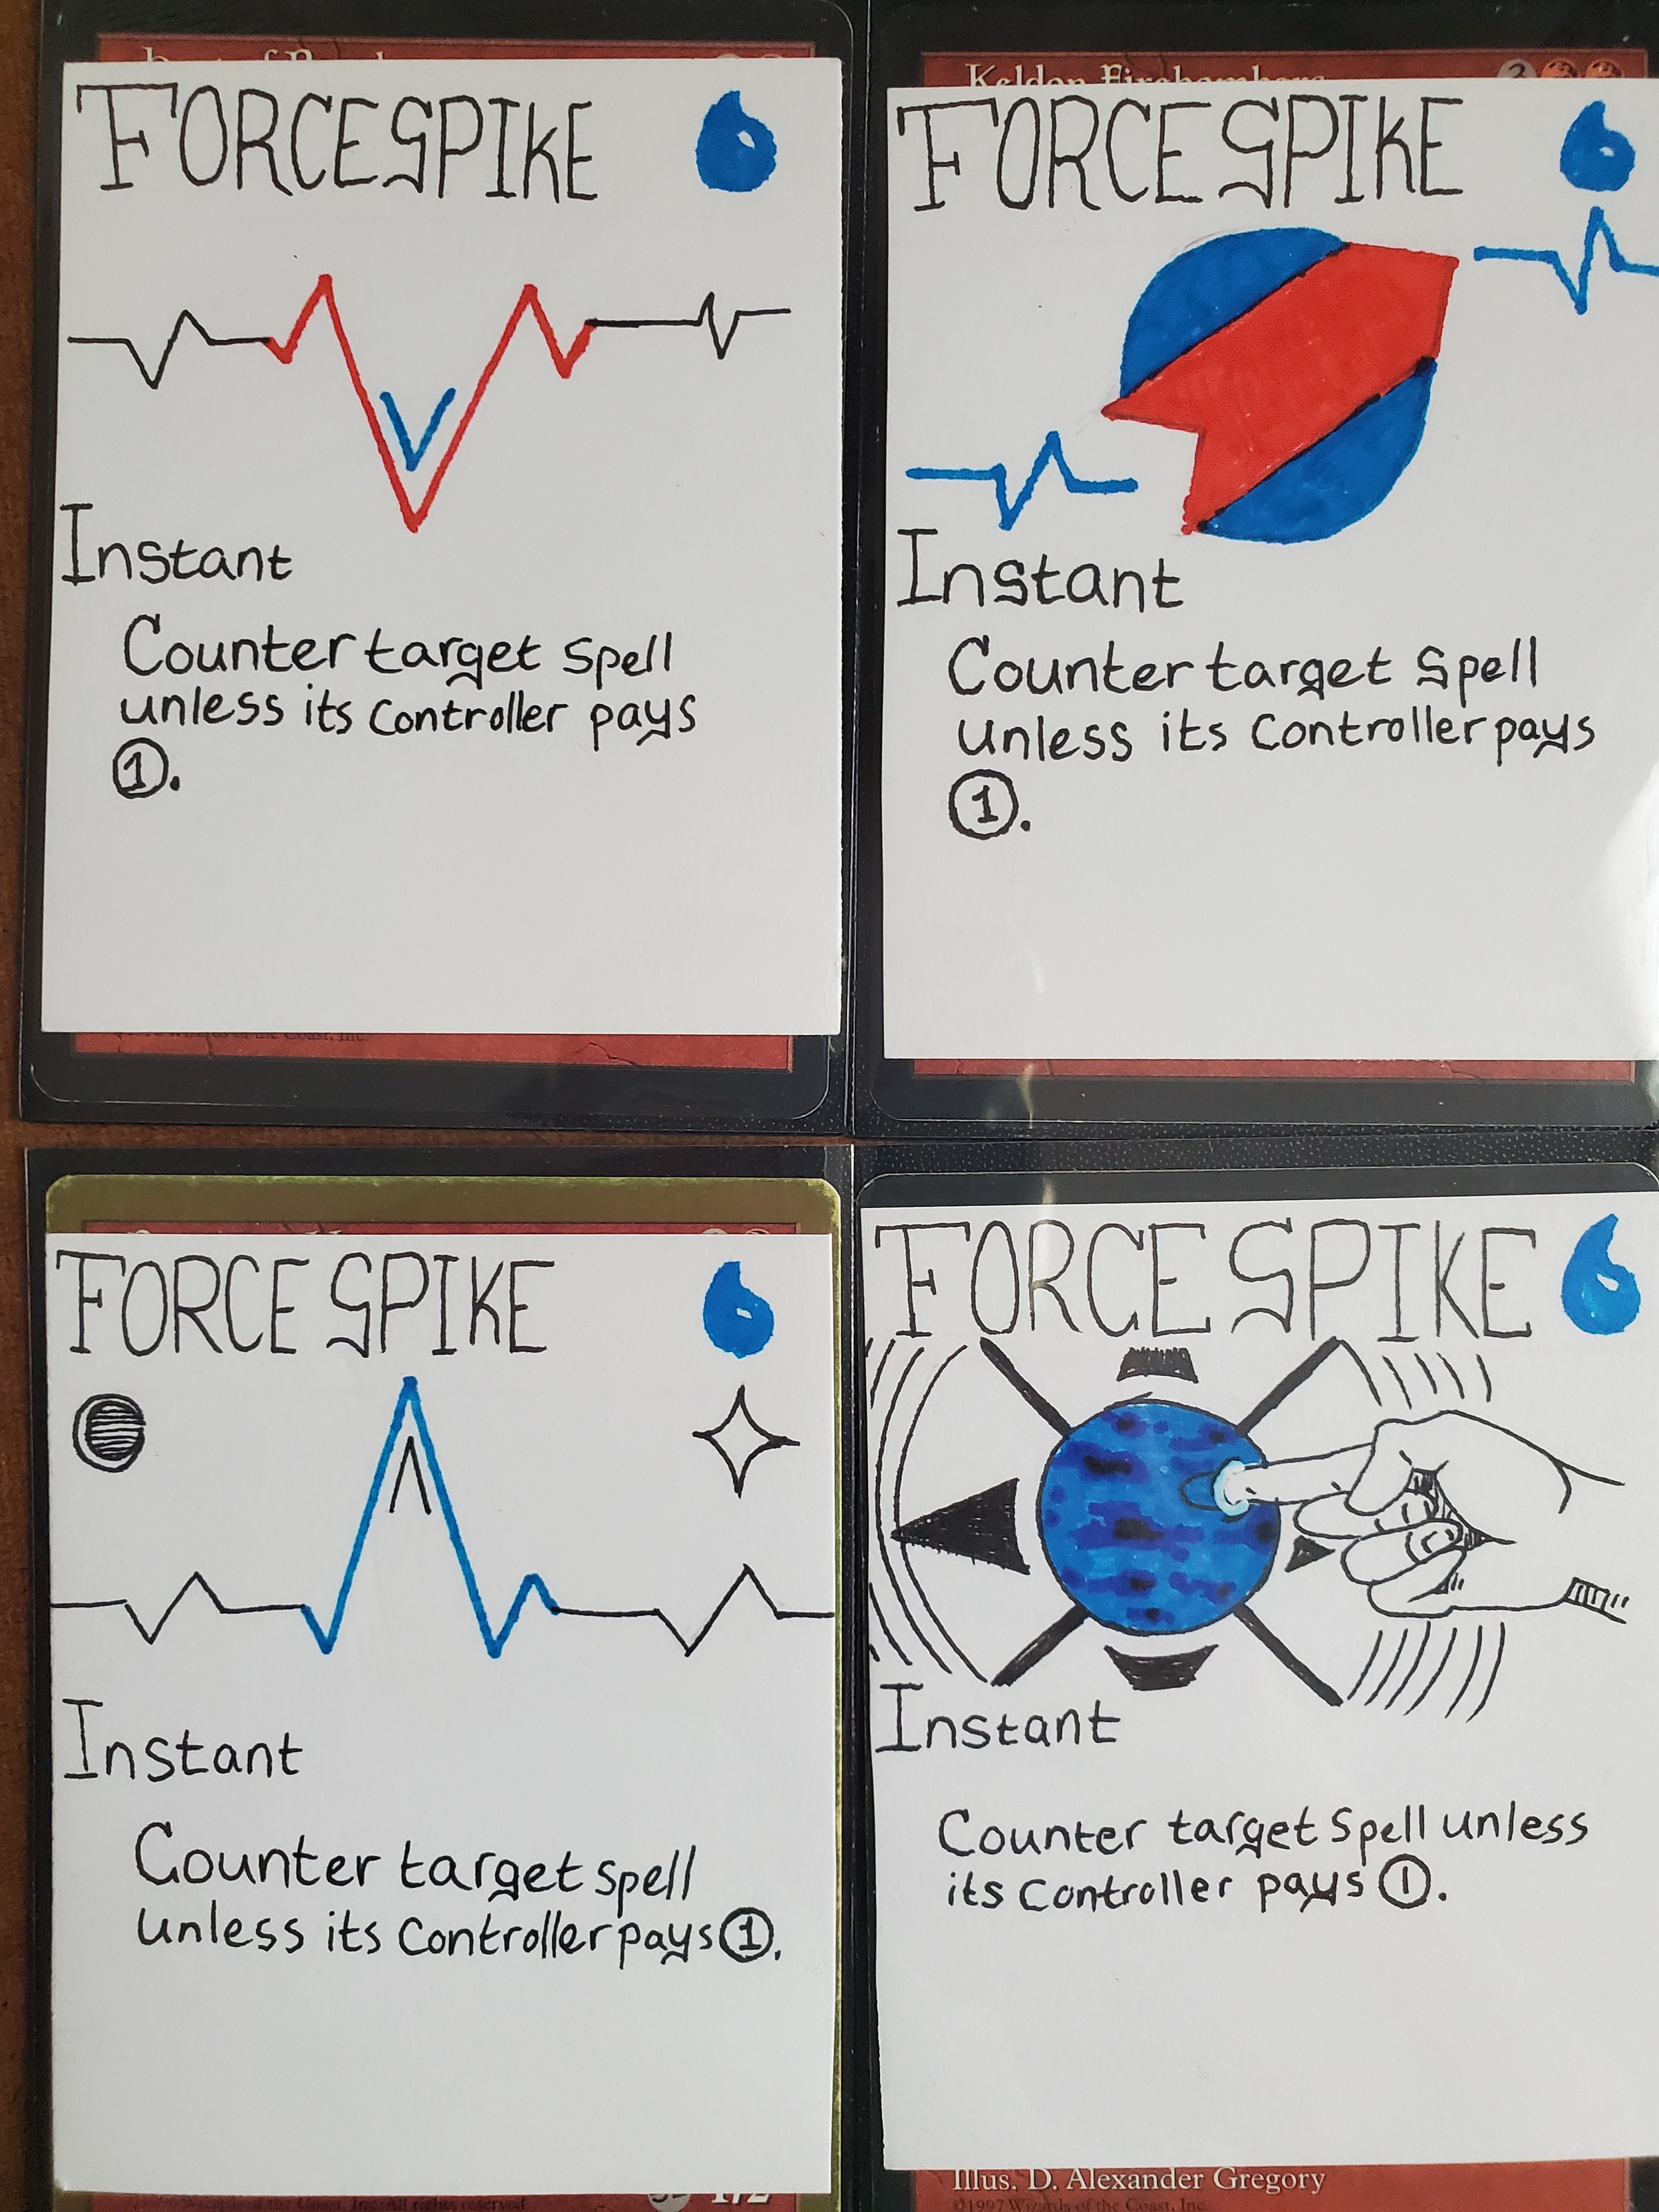 Keldon Firebombers
3
FORCE SPIKE
Instant
Counter target spell
unless its controller pays
1.
of the Coast, Inc.
FORCE SPIKE
Instant
Counter target spell
unless its controller pays
1.
FORCE SPIKE
Instant
Counter target spell
unless its controller pays 1.
of the Coast, Inc. All rights reserved
1/2
FORCE SPIKE
Instant
Counter target spell unless
its controller pays 1.
Illus. D. Alexander Gregory
©1997 Wizards of the Coast, Inc.